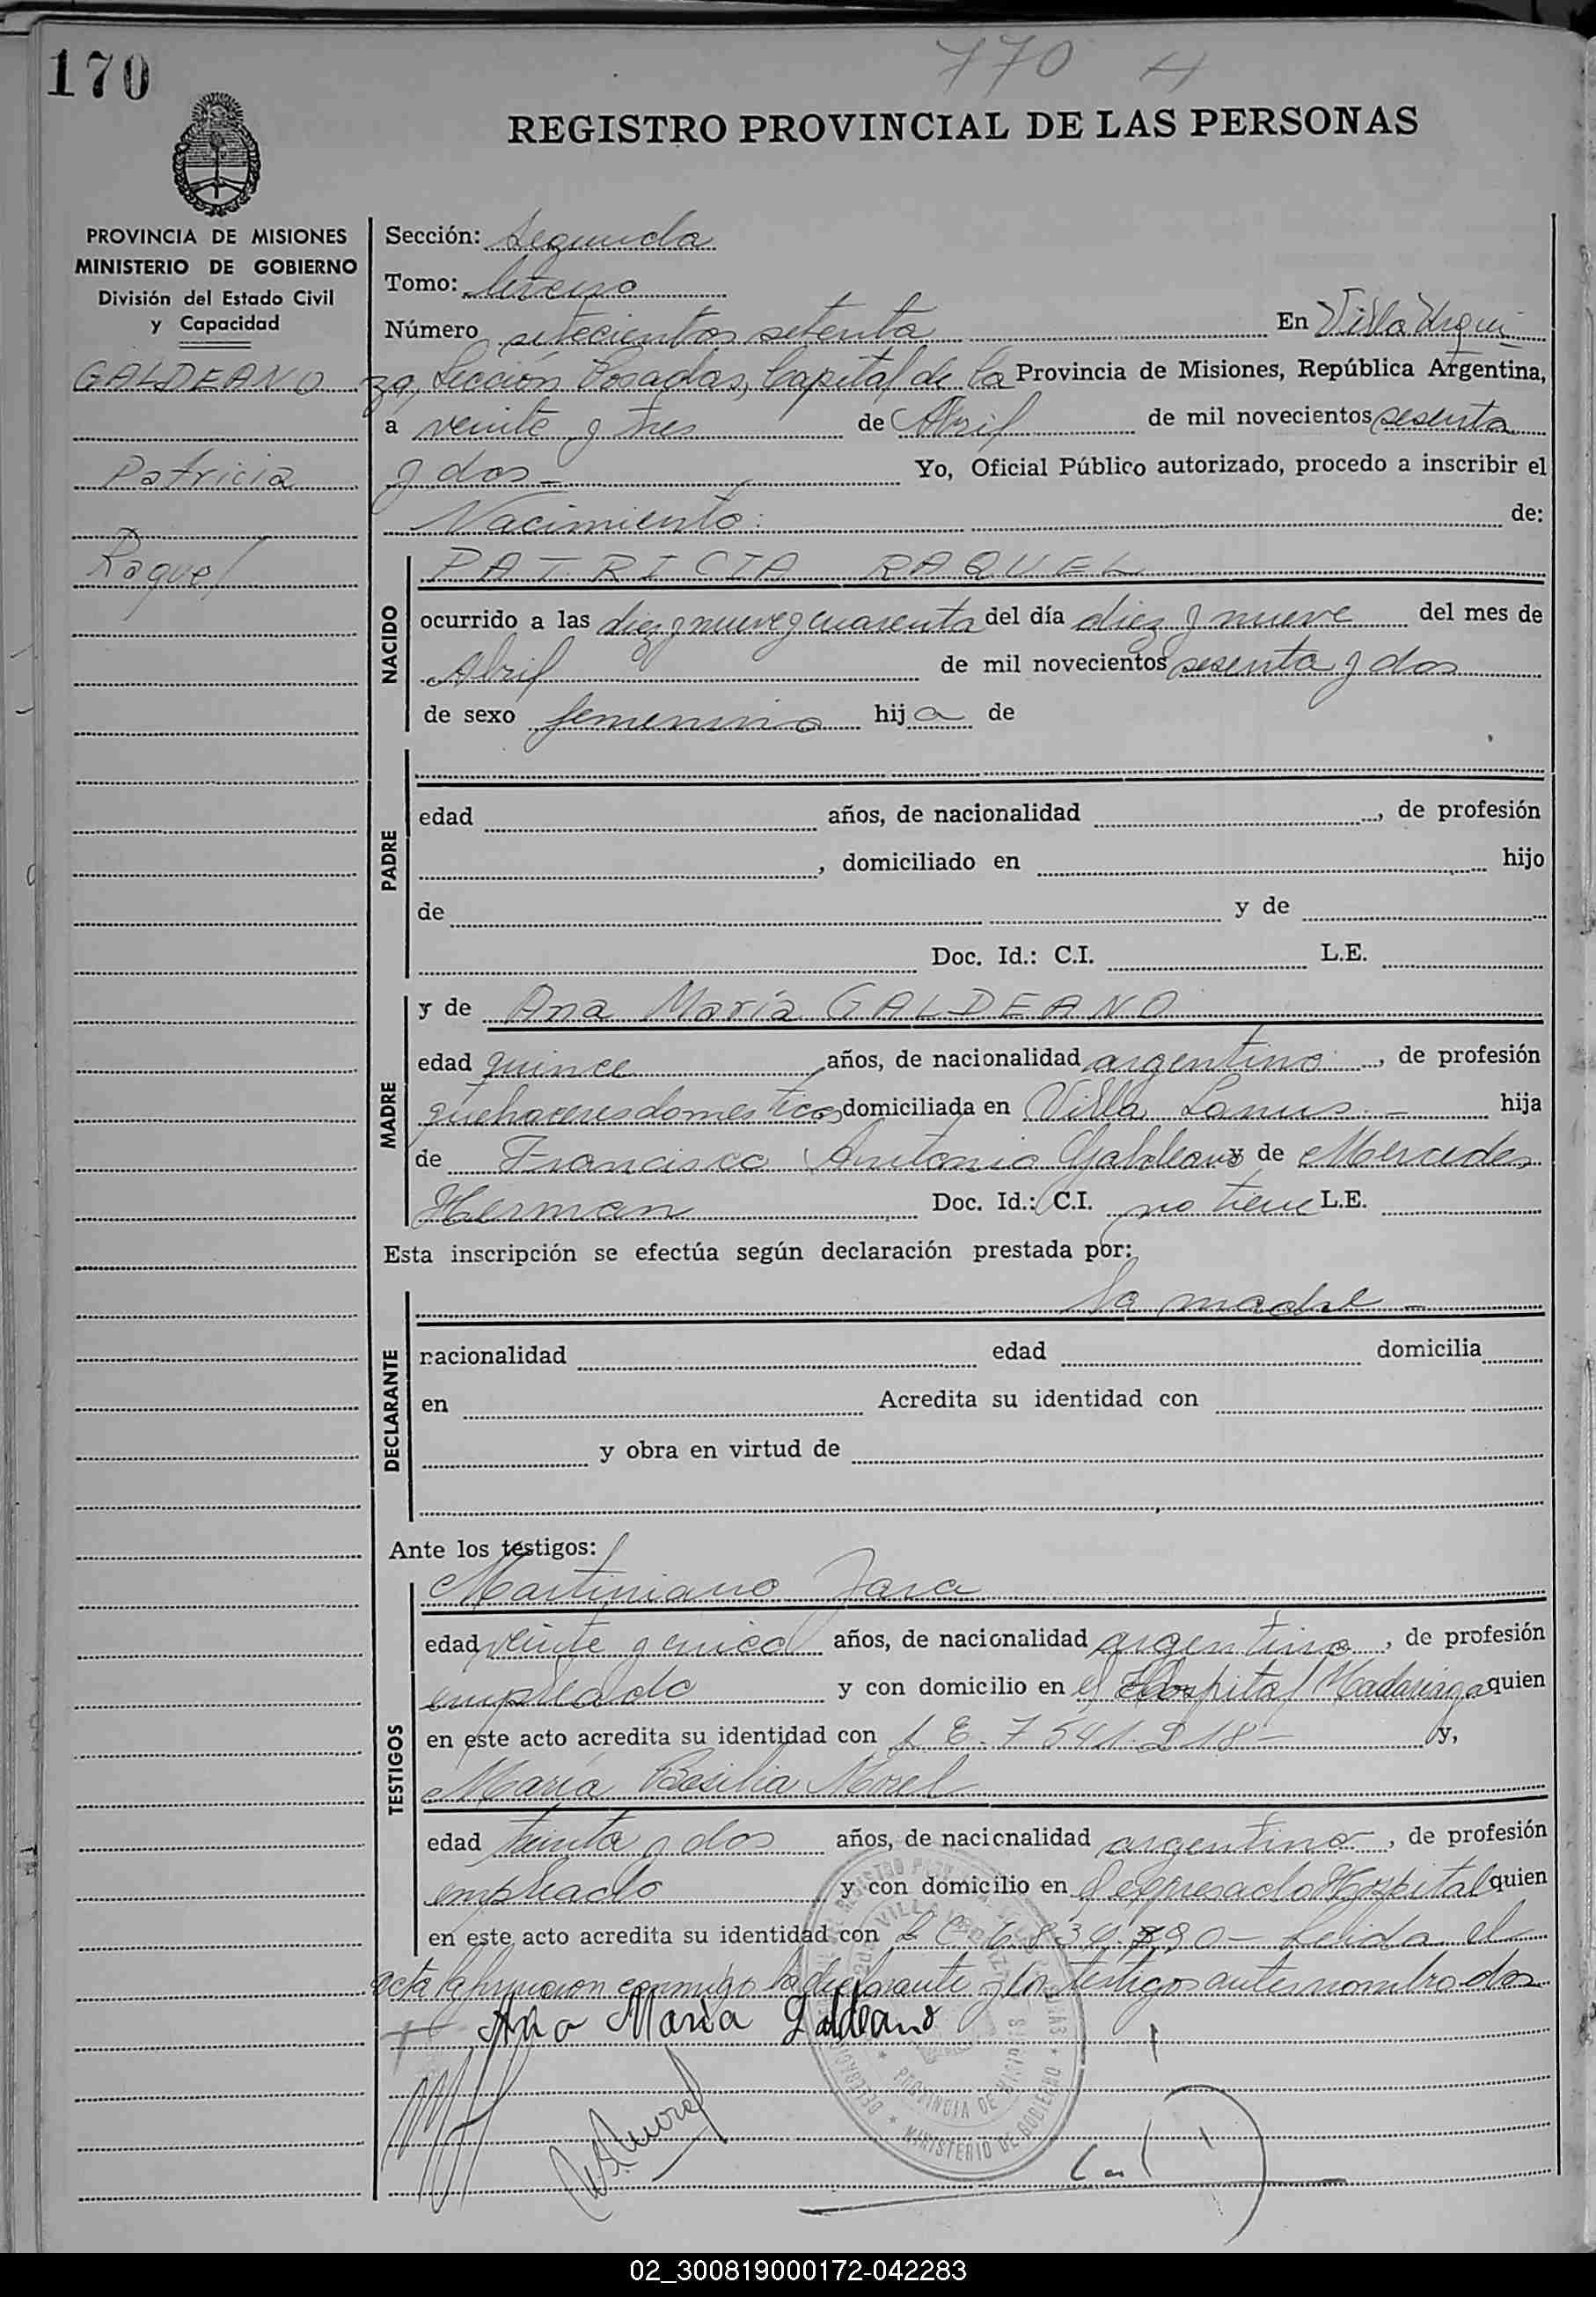 170
770 H
REGISTRO PROVINCIAL DE LAS PERSONAS
PROVINCIA DE MISIONES
MINISTERIO DE GOBIERNO
División del Estado Civil
y Capacidad
GALDEANO
Patricia
Raquel
Sección: Segunda
Tomo: tercero
Número setecientos setenta En Villa Urqui
za, Sección Posadas, Capital de la Provincia de Misiones, República Argentina,
a veinte y tres de Abril de mil novecientos sesenta
y dos - Yo, Oficial Público autorizado, procedo a inscribir el
Nacimiento: de:
NACIDO
PATRICIA RAQUEL
ocurrido a las diez y nueve y cuarenta del día diez y nueve del mes de
Abril de mil novecientos sesenta y dos
de sexo femenino hija de
PADRE
edad años, de nacionalidad , de profesión
, domiciliado en hijo
de y de
Doc. Id.: C.I. L.E.
MADRE
y de Ana María GALDEANO
edad quince años, de nacionalidad argentina , de profesión
quehaceres domesticos domiciliada en Villa Lanus. - hija
de Francisco Antonio Galdeano y de Mercedes
Herman Doc. Id.: C.I. no tiene L.E.
Esta inscripción se efectúa según declaración prestada por:
DECLARANTE
la madre -
nacionalidad edad domicilia
en Acredita su identidad con
y obra en virtud de
Ante los testigos:
TESTIGOS
Martiniano Jara
edad veinte y cinco años, de nacionalidad argentino , de profesión
empleado y con domicilio en el Hospital Madariaga quien
en este acto acredita su identidad con L E. 7 541.218 - y,
María Basilia Morel
edad treinta y dos años, de nacionalidad argentina , de profesión
empleado y con domicilio en el expresado Hospital quien
en este acto acredita su identidad con L C 6.839.890 - Leida el
acta la firmaron conmigo la declarante y los testigos antes nombrados
Ana Maria Galdeano
PROVINCIA DE MISIONES
MINISTERIO DE GOBIERNO
02_300819000172-042283